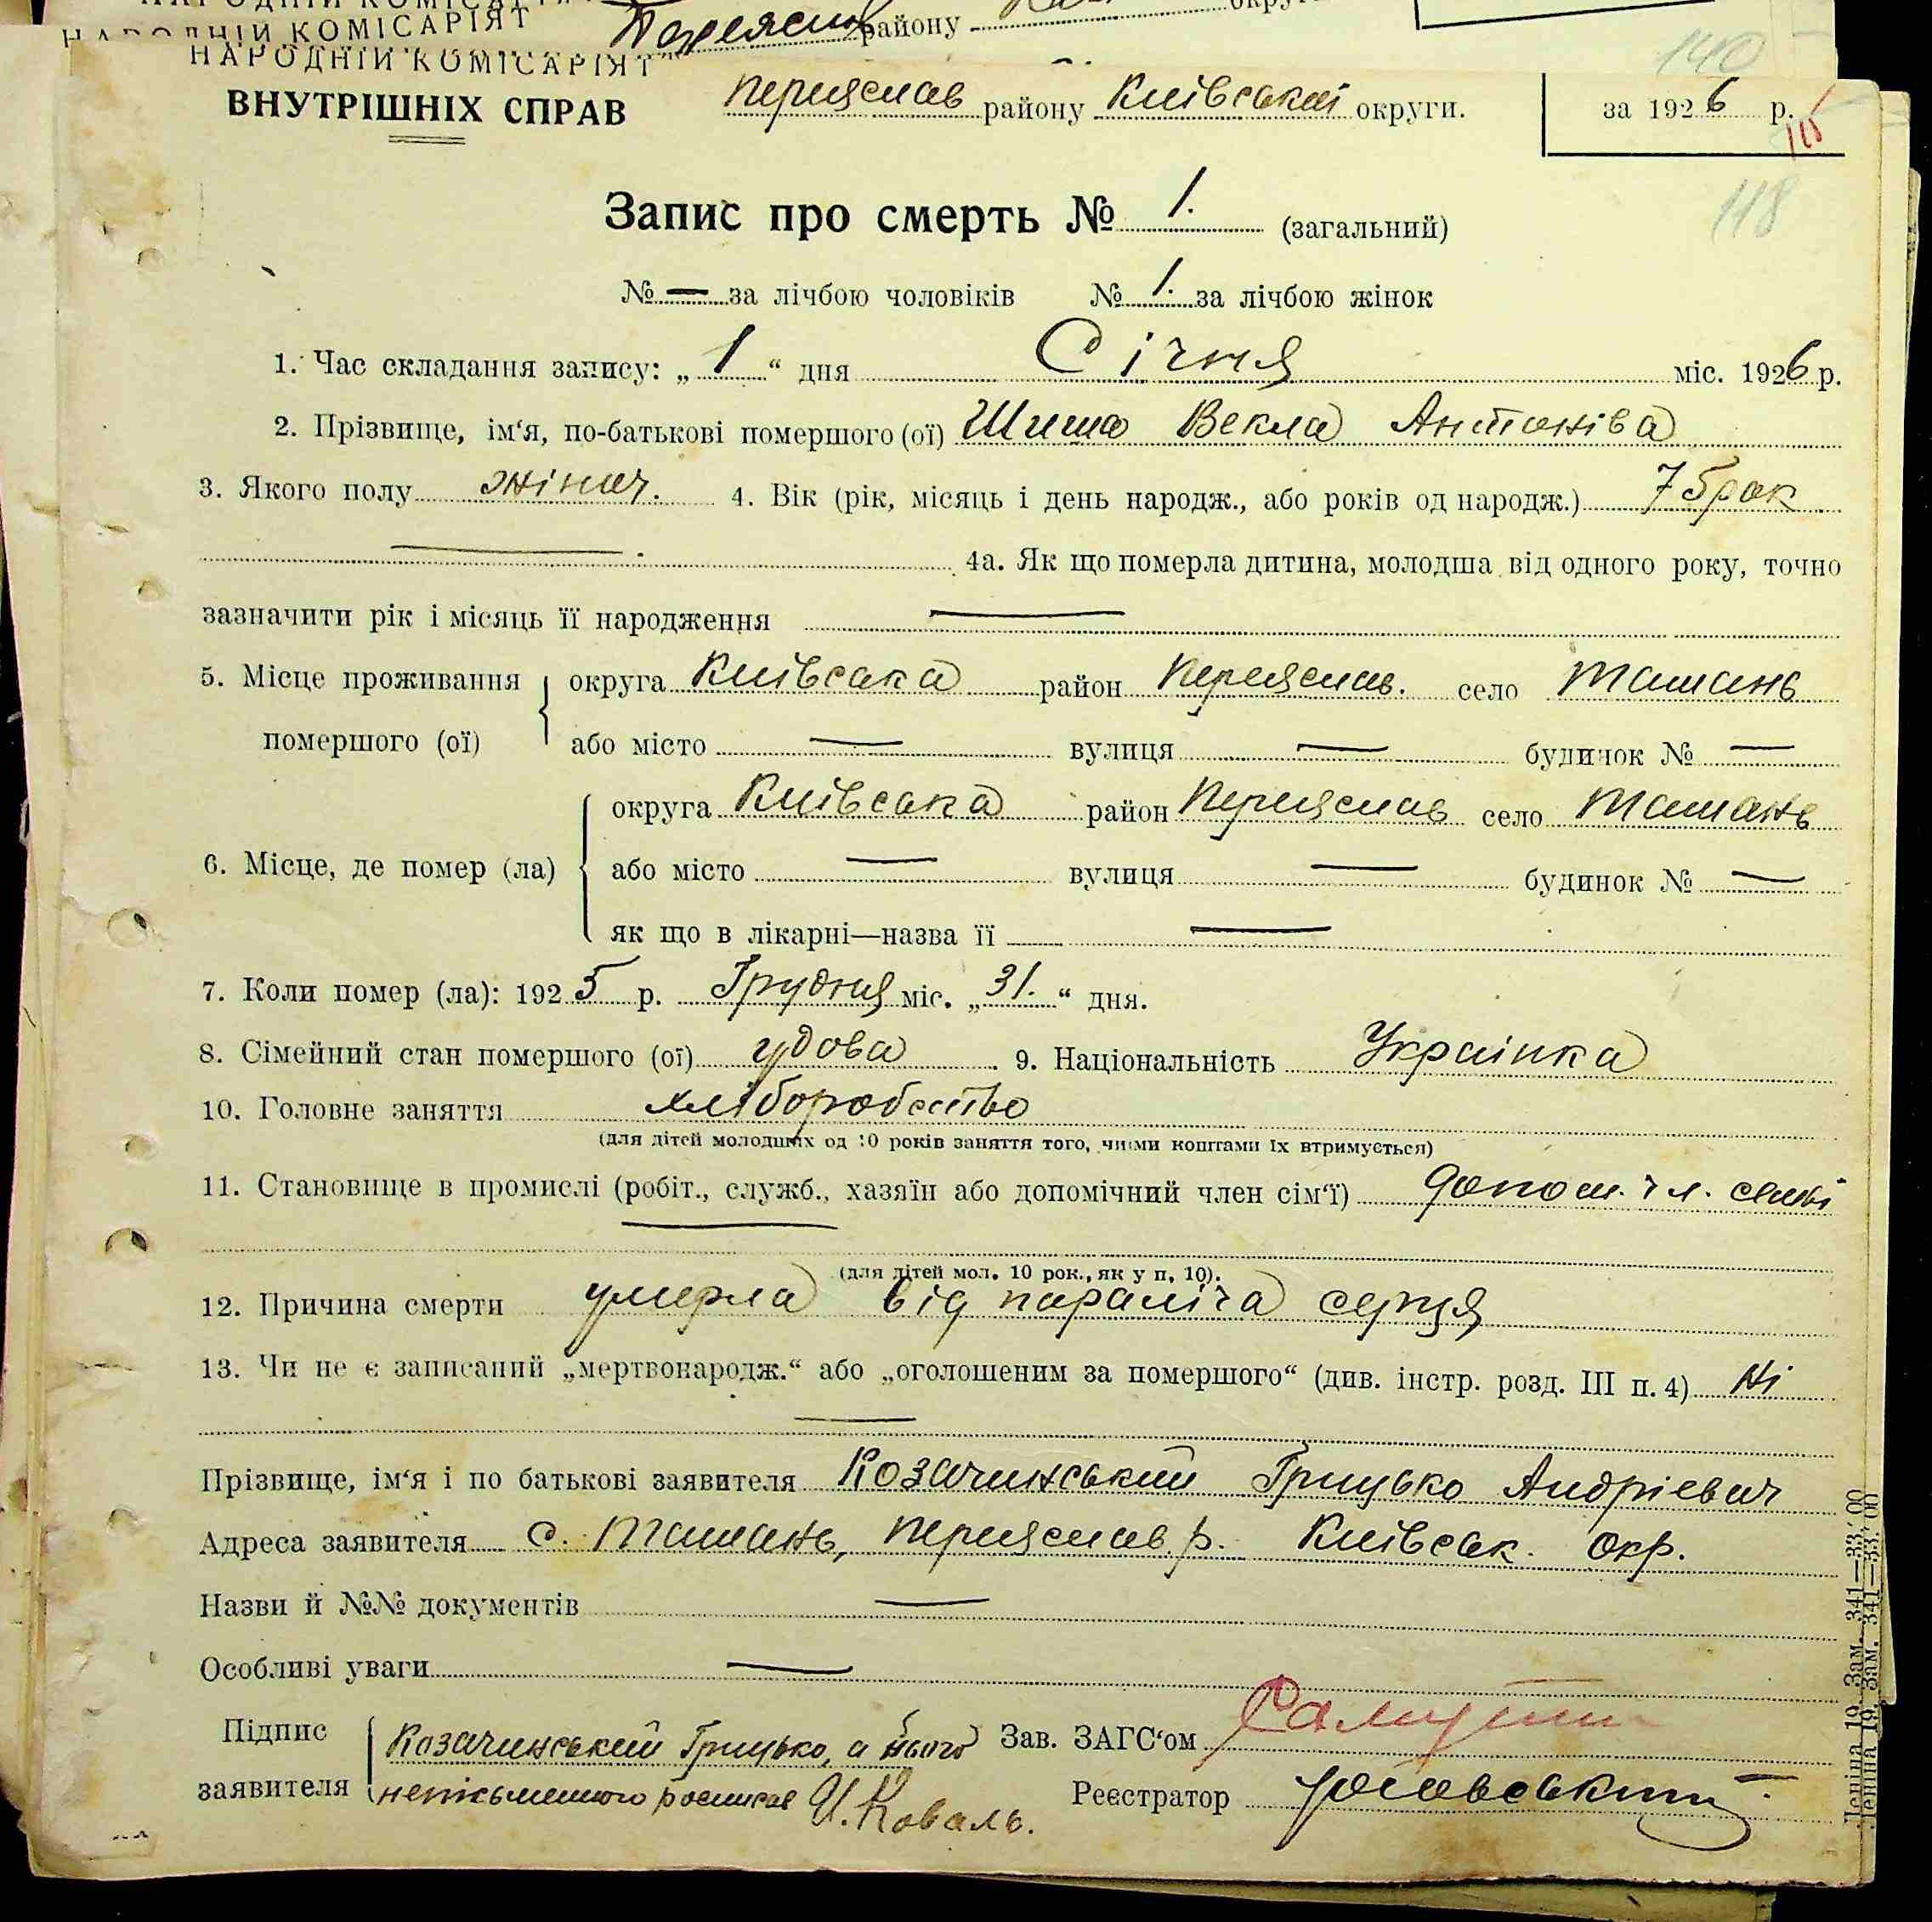 НАРОДНІЙ КОМІСАРІЯТ
району
НАРОДНІЙ КОМІСАРІЯТ
140
ВНУТРІШНІХ СПРАВ Переяслав району Київської округи. за 1926 р.
118
Запис про смерть № 1. (загальний)
№ — за лічбою чоловіків № 1. за лічбою жінок
1. Час складання запису: „1“ дня Січня міс. 1926 р.
2. Прізвище, ім‘я, по-батькові помершого (ої) Векла Антонівa
3. Якого полу жіноч. 4. Вік (рік, місяць і день народж., або років од народж.) 75 рок
— 4а. Як що померла дитина, молодша від одного року, точно
зазначити рік і місяць її народження —
5. Місце проживання округа Київська район Переяслав. село Ташань
помершого (ої) або місто — вулиця — будинок № —
округа Київська район Переяслав село Ташань
6. Місце, де помер (ла) або місто — вулиця — будинок № —
як що в лікарні—назва її —
7. Коли помер (ла): 1925 р. Грудня міс. „31.“ дня.
8. Сімейний стан помершого (ої) удова 9. Національність Українка
10. Головне заняття хліборобство
(для дітей молодших од 10 років заняття того, чиїми коштами їх втримується)
11. Становище в промислі (робіт., служб., хазяїн або допомічний член сім‘ї) допом. чл. семьі
—
(для дітей мол. 10 рок., як у п. 10).
12. Причина смерти умерла від параліча серця
13. Чи не є записаний „мертвонародж.“ або „оголошеним за помершого“ (див. інстр. розд. III п. 4) Ні
—
Прізвище, ім‘я і по батькові заявителя Козачинський Грицько Андрієвич
Адреса заявителя с. Ташань, Переяслав. р. Київськ. Окр.
Назви й №№ документів —
Особливі уваги —
Підпис Козачинський Грицько, а нього Зав. ЗАГС‘ом
заявителя неписьменного росписав И. Коваль. Реєстратор
Зам. 341—33.00